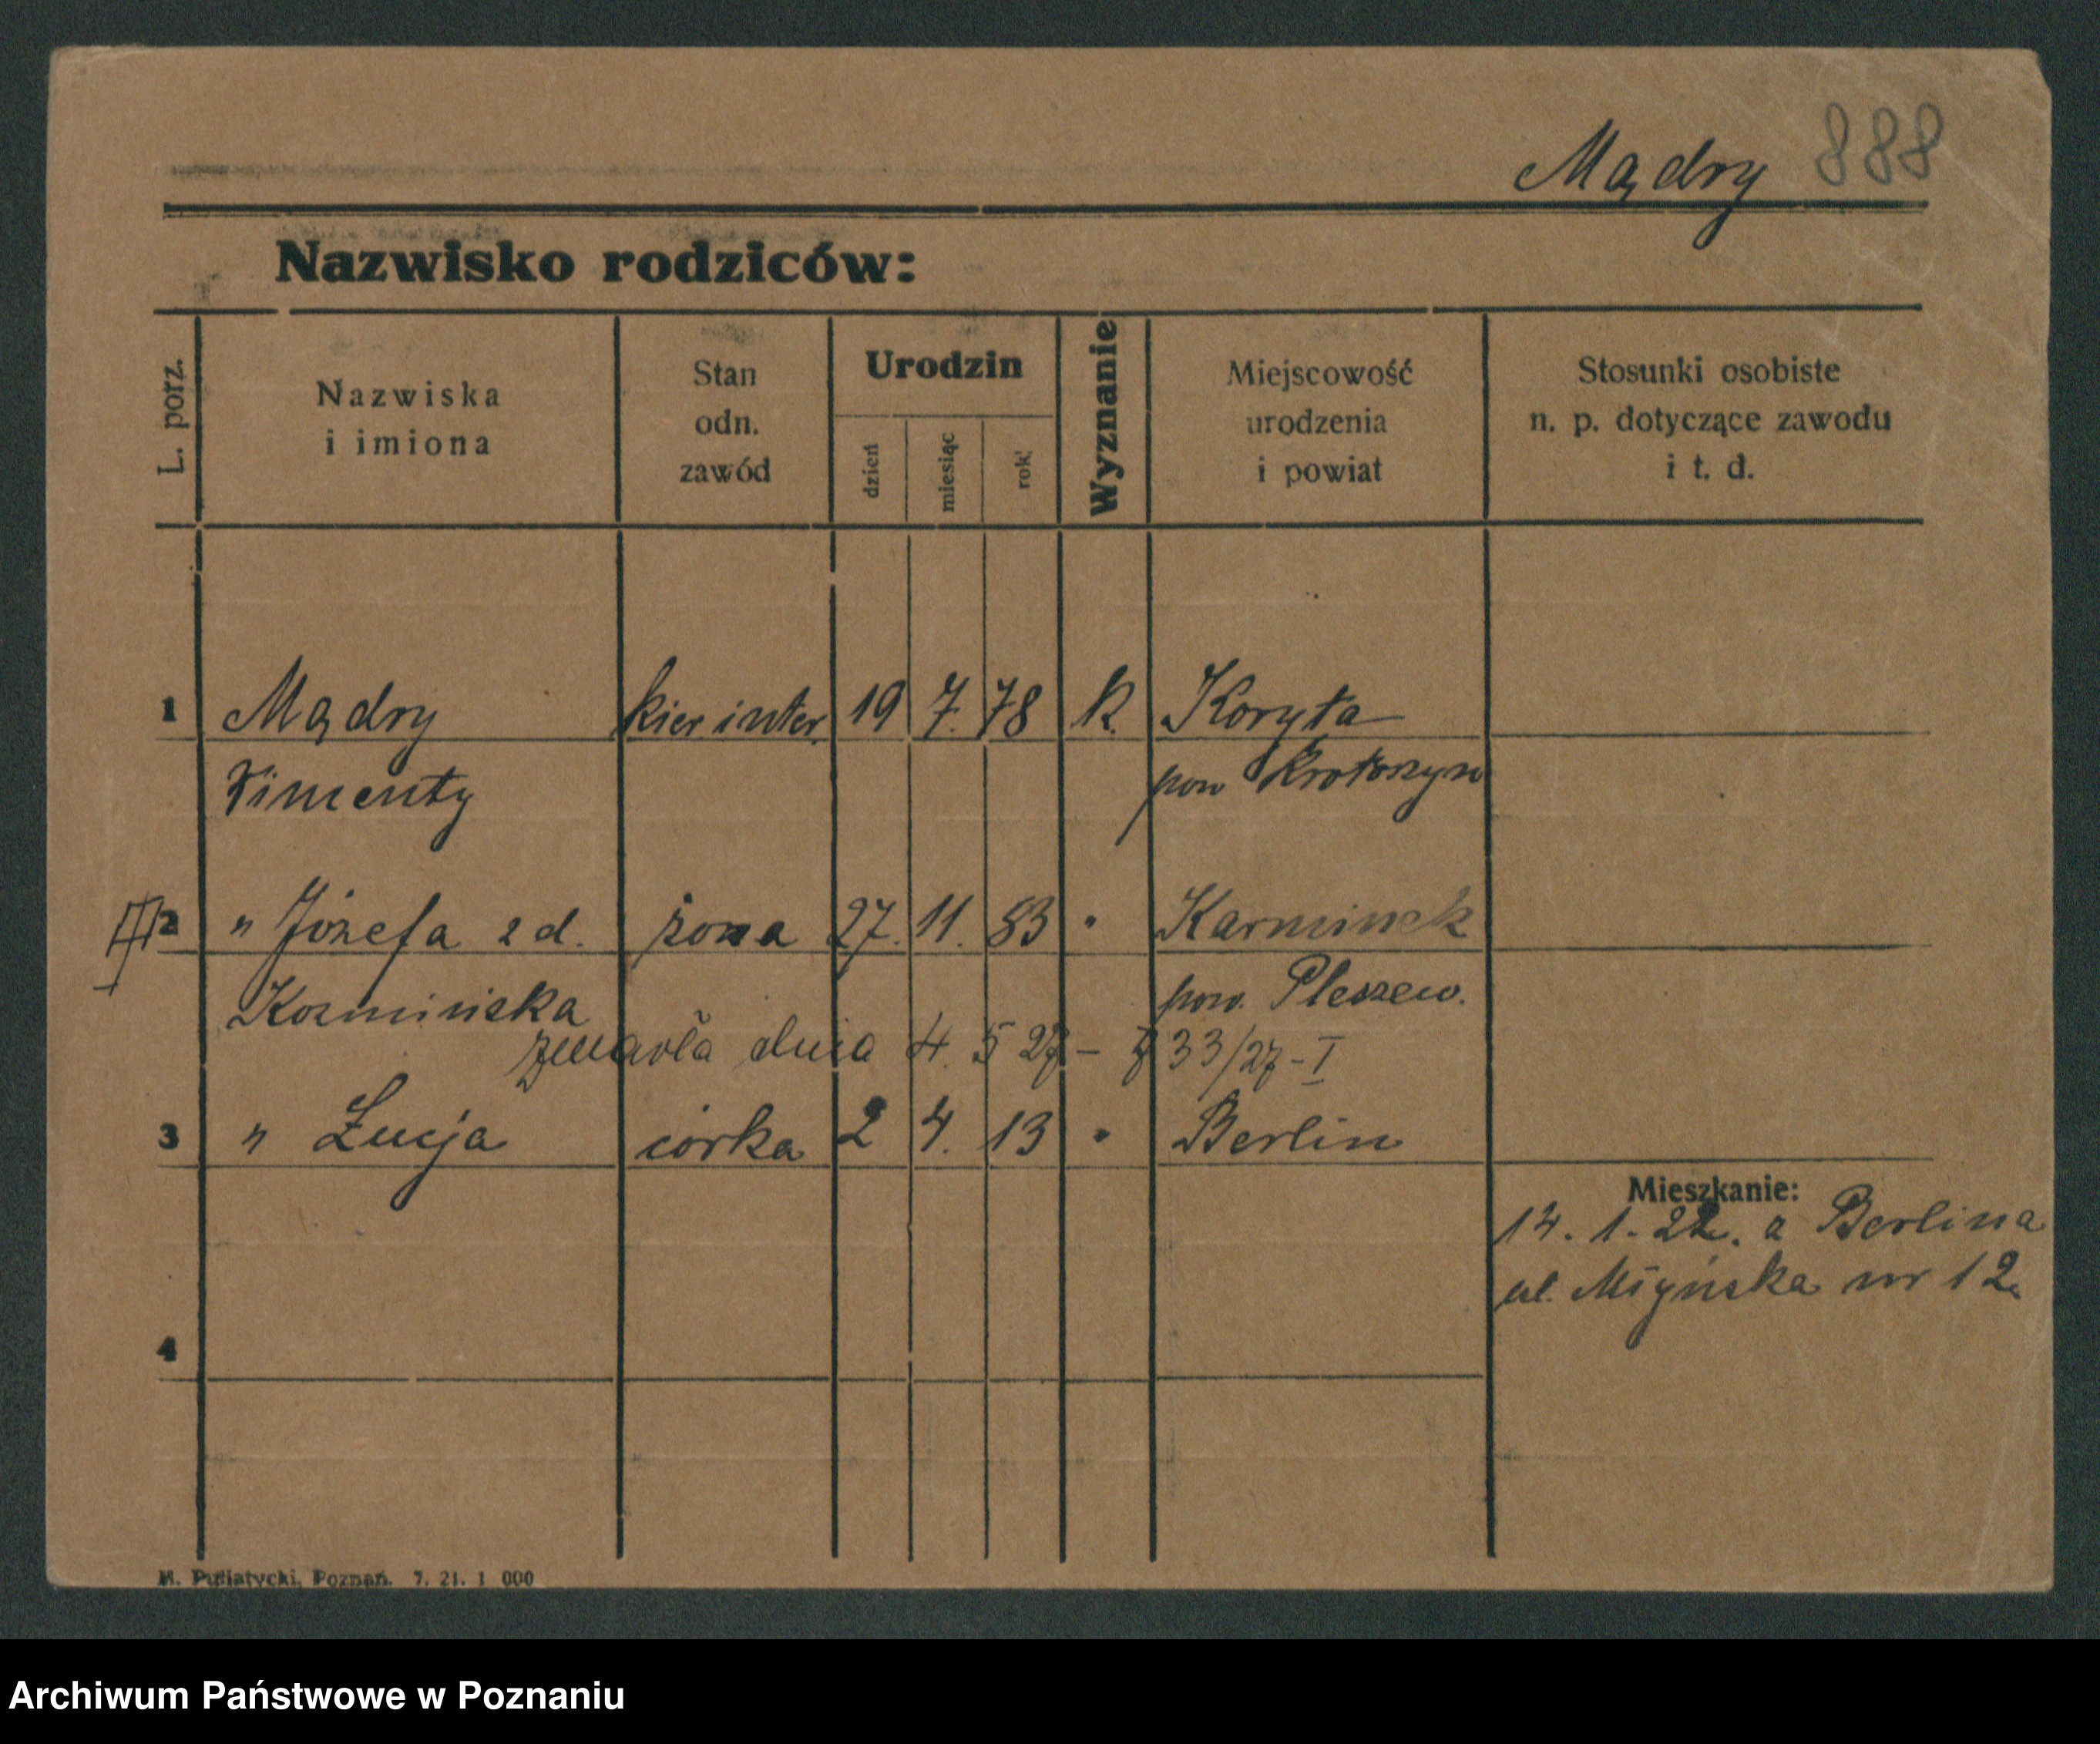 Mądry 888
Nazwisko rodziców:
L. porz.
Nazwiska
i imiona
Stan
odn.
zawód
Urodzin
dzień
miesiąc
rok
Wyznanie
Miejscowość
urodzenia
i powiat
Stosunki osobiste
n. p. dotyczące zawodu
i t. d.
1 Mądry kier inter. 19 7. 78 k. Koryta
pow Krotoszyn
2 " Józefa z d. żona 27. 11. 83 " Karminek
Kozmińska pow. Pleszew.
zmarła dnia 4. 5 27 - 33/27 - I
3 " Łucja córka 2 4. 13 " Berlin
Mieszkanie:
14. 1. 22. z Berlina
ul. Młyńska nr 12.
4
Poznań. 7. 21. 1 000
Archiwum Państwowe w Poznaniu